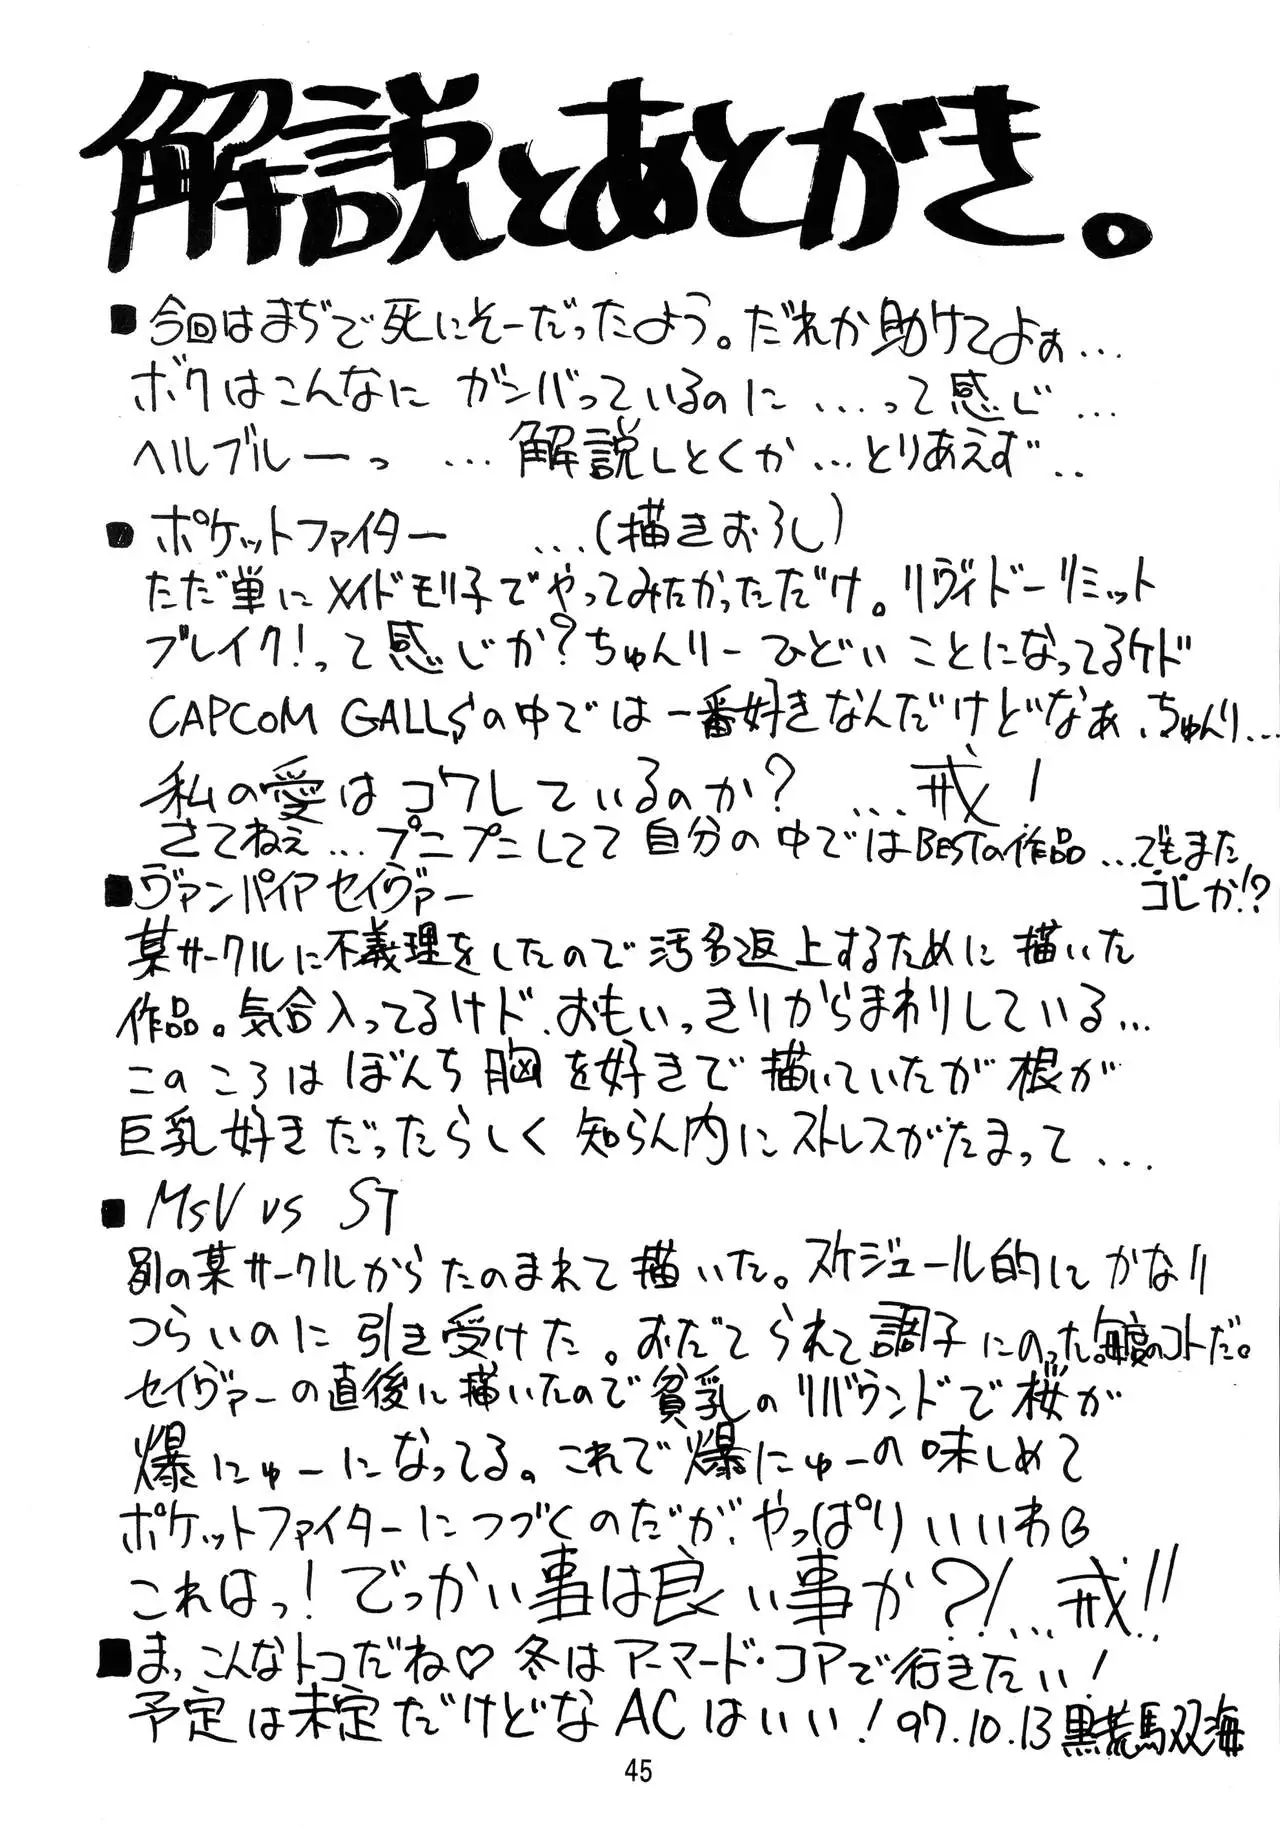 解説とあとがき。
■今回はまぢで死にそーだったよう。だれか助けてよぉ...
ボクはこんなに ガンバっているのに...って感じ...
ヘルブルーっ ...解説しとくか...とりあえず..
■ポケットファイター ...(描きおろし)
ただ単にメイドモリ子でやってみたかっただけ。リヴィドーリミット
ブレイク!って感じか?ちゅんりー ひどいことになってるケド
CAPCOM GALLSの中では一番好きなんだけどなぁ、ちゅんり...
私の愛はコワしているのか? ...戒!
さてねぇ...プニプニしてて自分の中ではBESTの作品...でもまた
ゴじか!?
■ヴァンパイアセイヴァー
某サークルに不義理をしたので汚名返上するために描いた
作品。気合入ってるけド、おもいっきりからまわりしている...
このころはぼんち胸を好きで描いていたが根が
巨乳好きだったらしく知らん内にストレスがたまって...
■MSV vs ST
別の某サークルからたのまれて描いた。スケジュール的にかなり
つらいのに引き受けた。おだてられて調子にのった。毎度のコトだ。
セイヴァーの直後に描いたので貧乳のリバウンドで桜が
爆にゅーになってる。これで爆にゅーの味しめて
ポケットファイターにつづくのだが、やっぱりいいわ
これはっ!でっかい事は良い事か?!...戒!!
■ま、こんなトコだね♡ 冬はアーマード・コアで行きたい!
予定は未定だけどな ACはいい! 97.10.13 黒荒馬双海
45